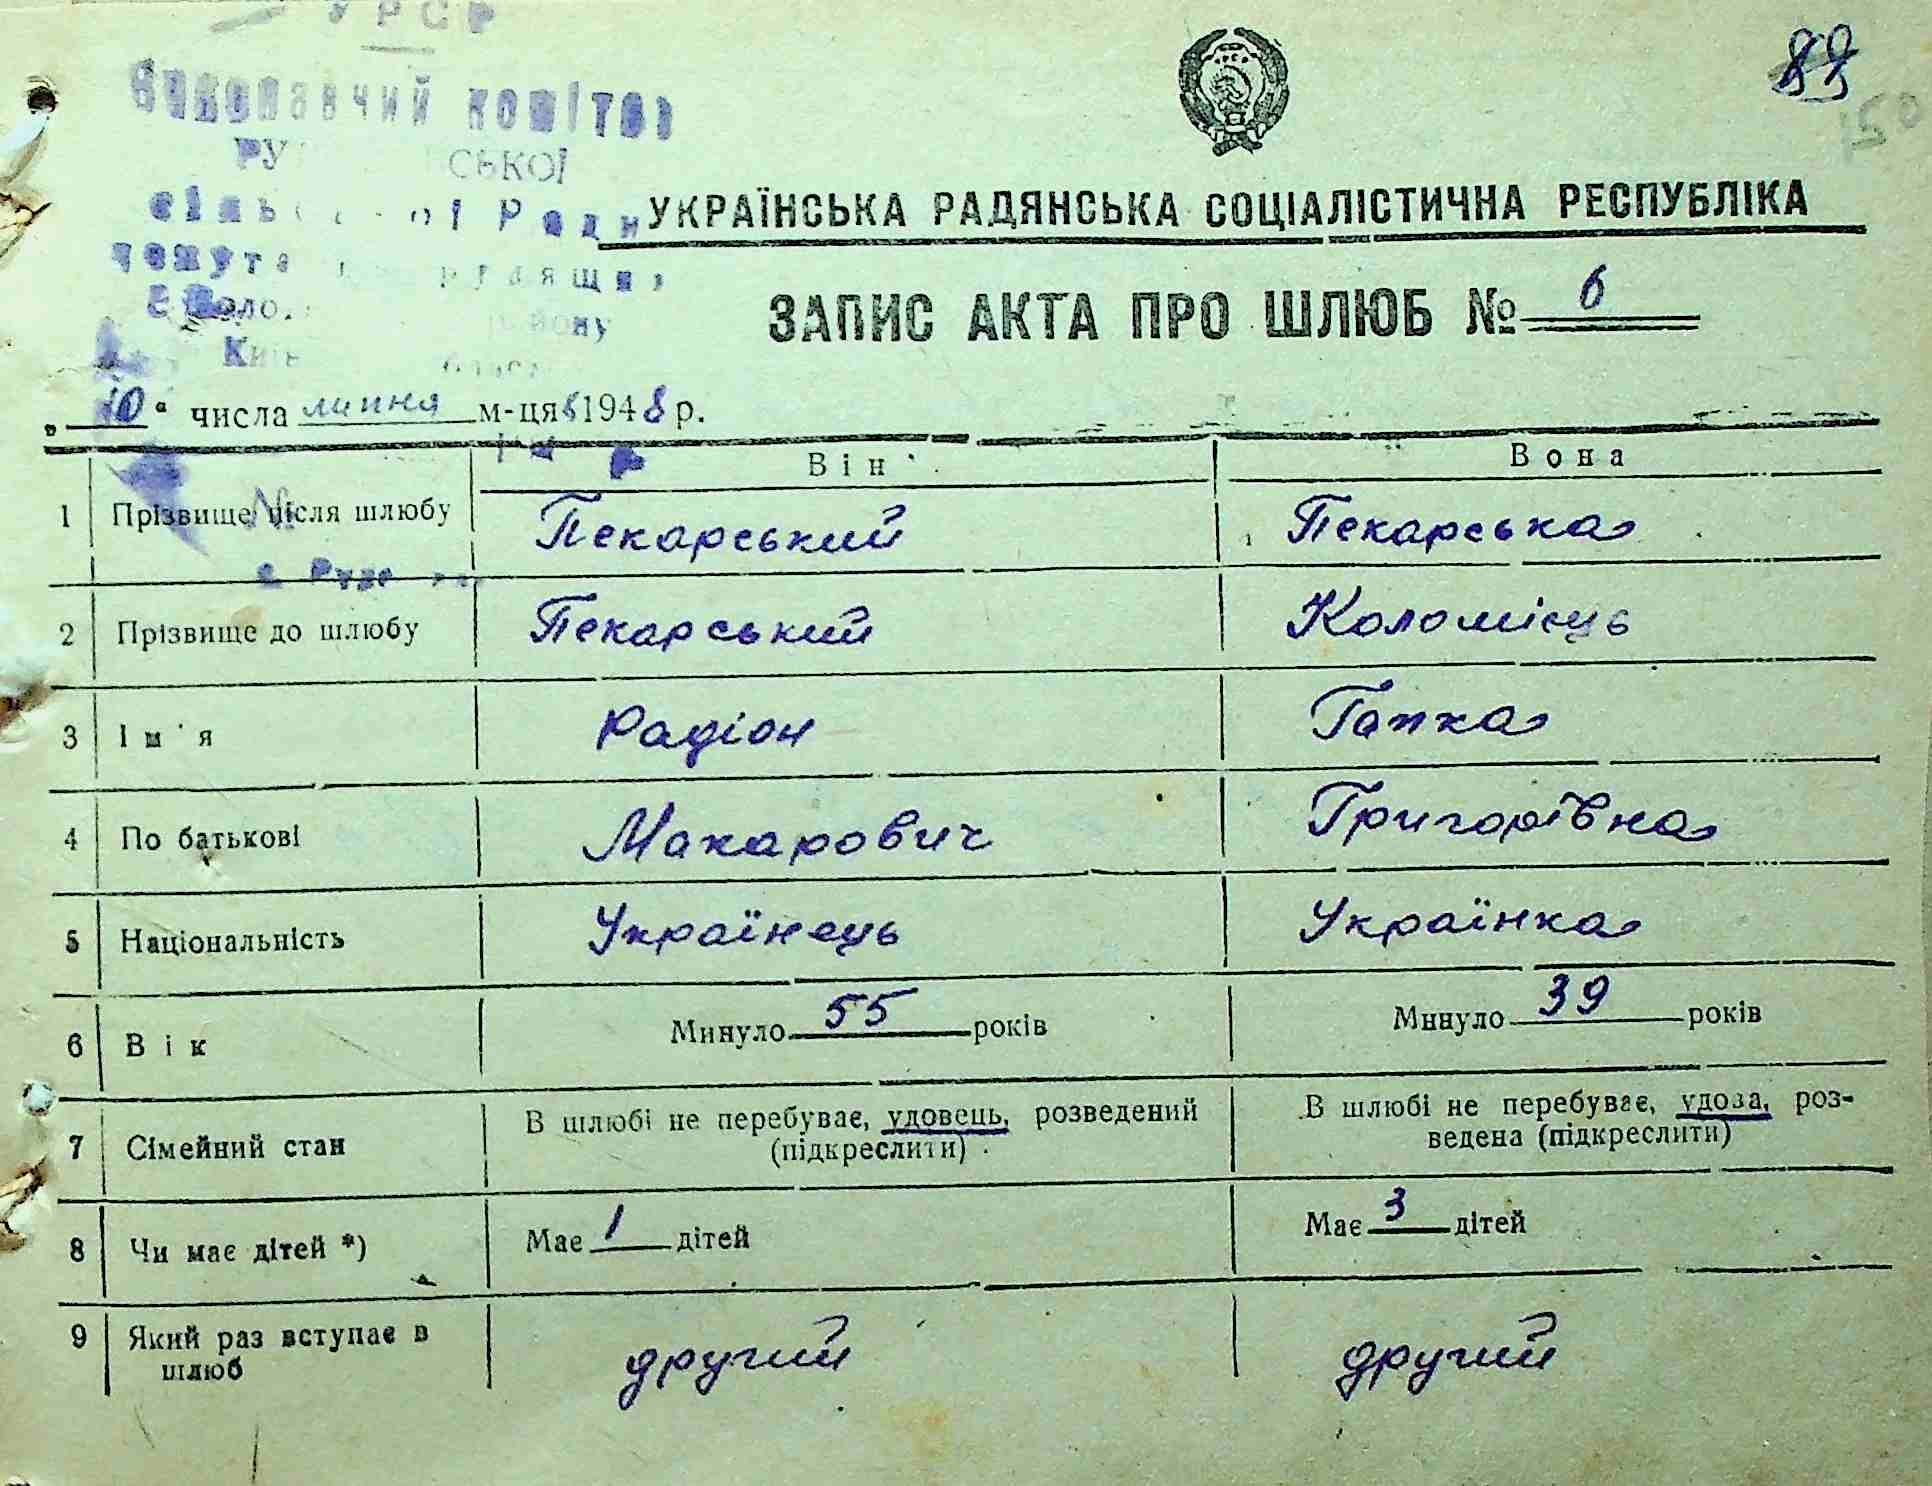 УРСР
Виконавчий комітет
СЬКОЇ
Ради
УКРАЇНСЬКА РАДЯНСЬКА СОЦІАЛІСТИЧНА РЕСПУБЛІКА
ЗАПИС АКТА ПРО ШЛЮБ № 6
„10“ числа липня м-ця 1948 р.
Він Вона
1 Прізвище після шлюбу Пекарський Пекарська
2 Прізвище до шлюбу Пекарський Коломієць
3 Ім'я Радіон Гапка
4 По батькові Макарович Григорівна
5 Національність Українець Українка
6 Вік Минуло 55 років Минуло 39 років
7 Сімейний стан В шлюбі не перебуває, удовець, розведений (підкреслити) В шлюбі не перебуває, удова, роз-
ведена (підкреслити)
8 Чи має дітей *) Має 1 дітей Має 3 дітей
9 Який раз вступає в шлюб другий другий